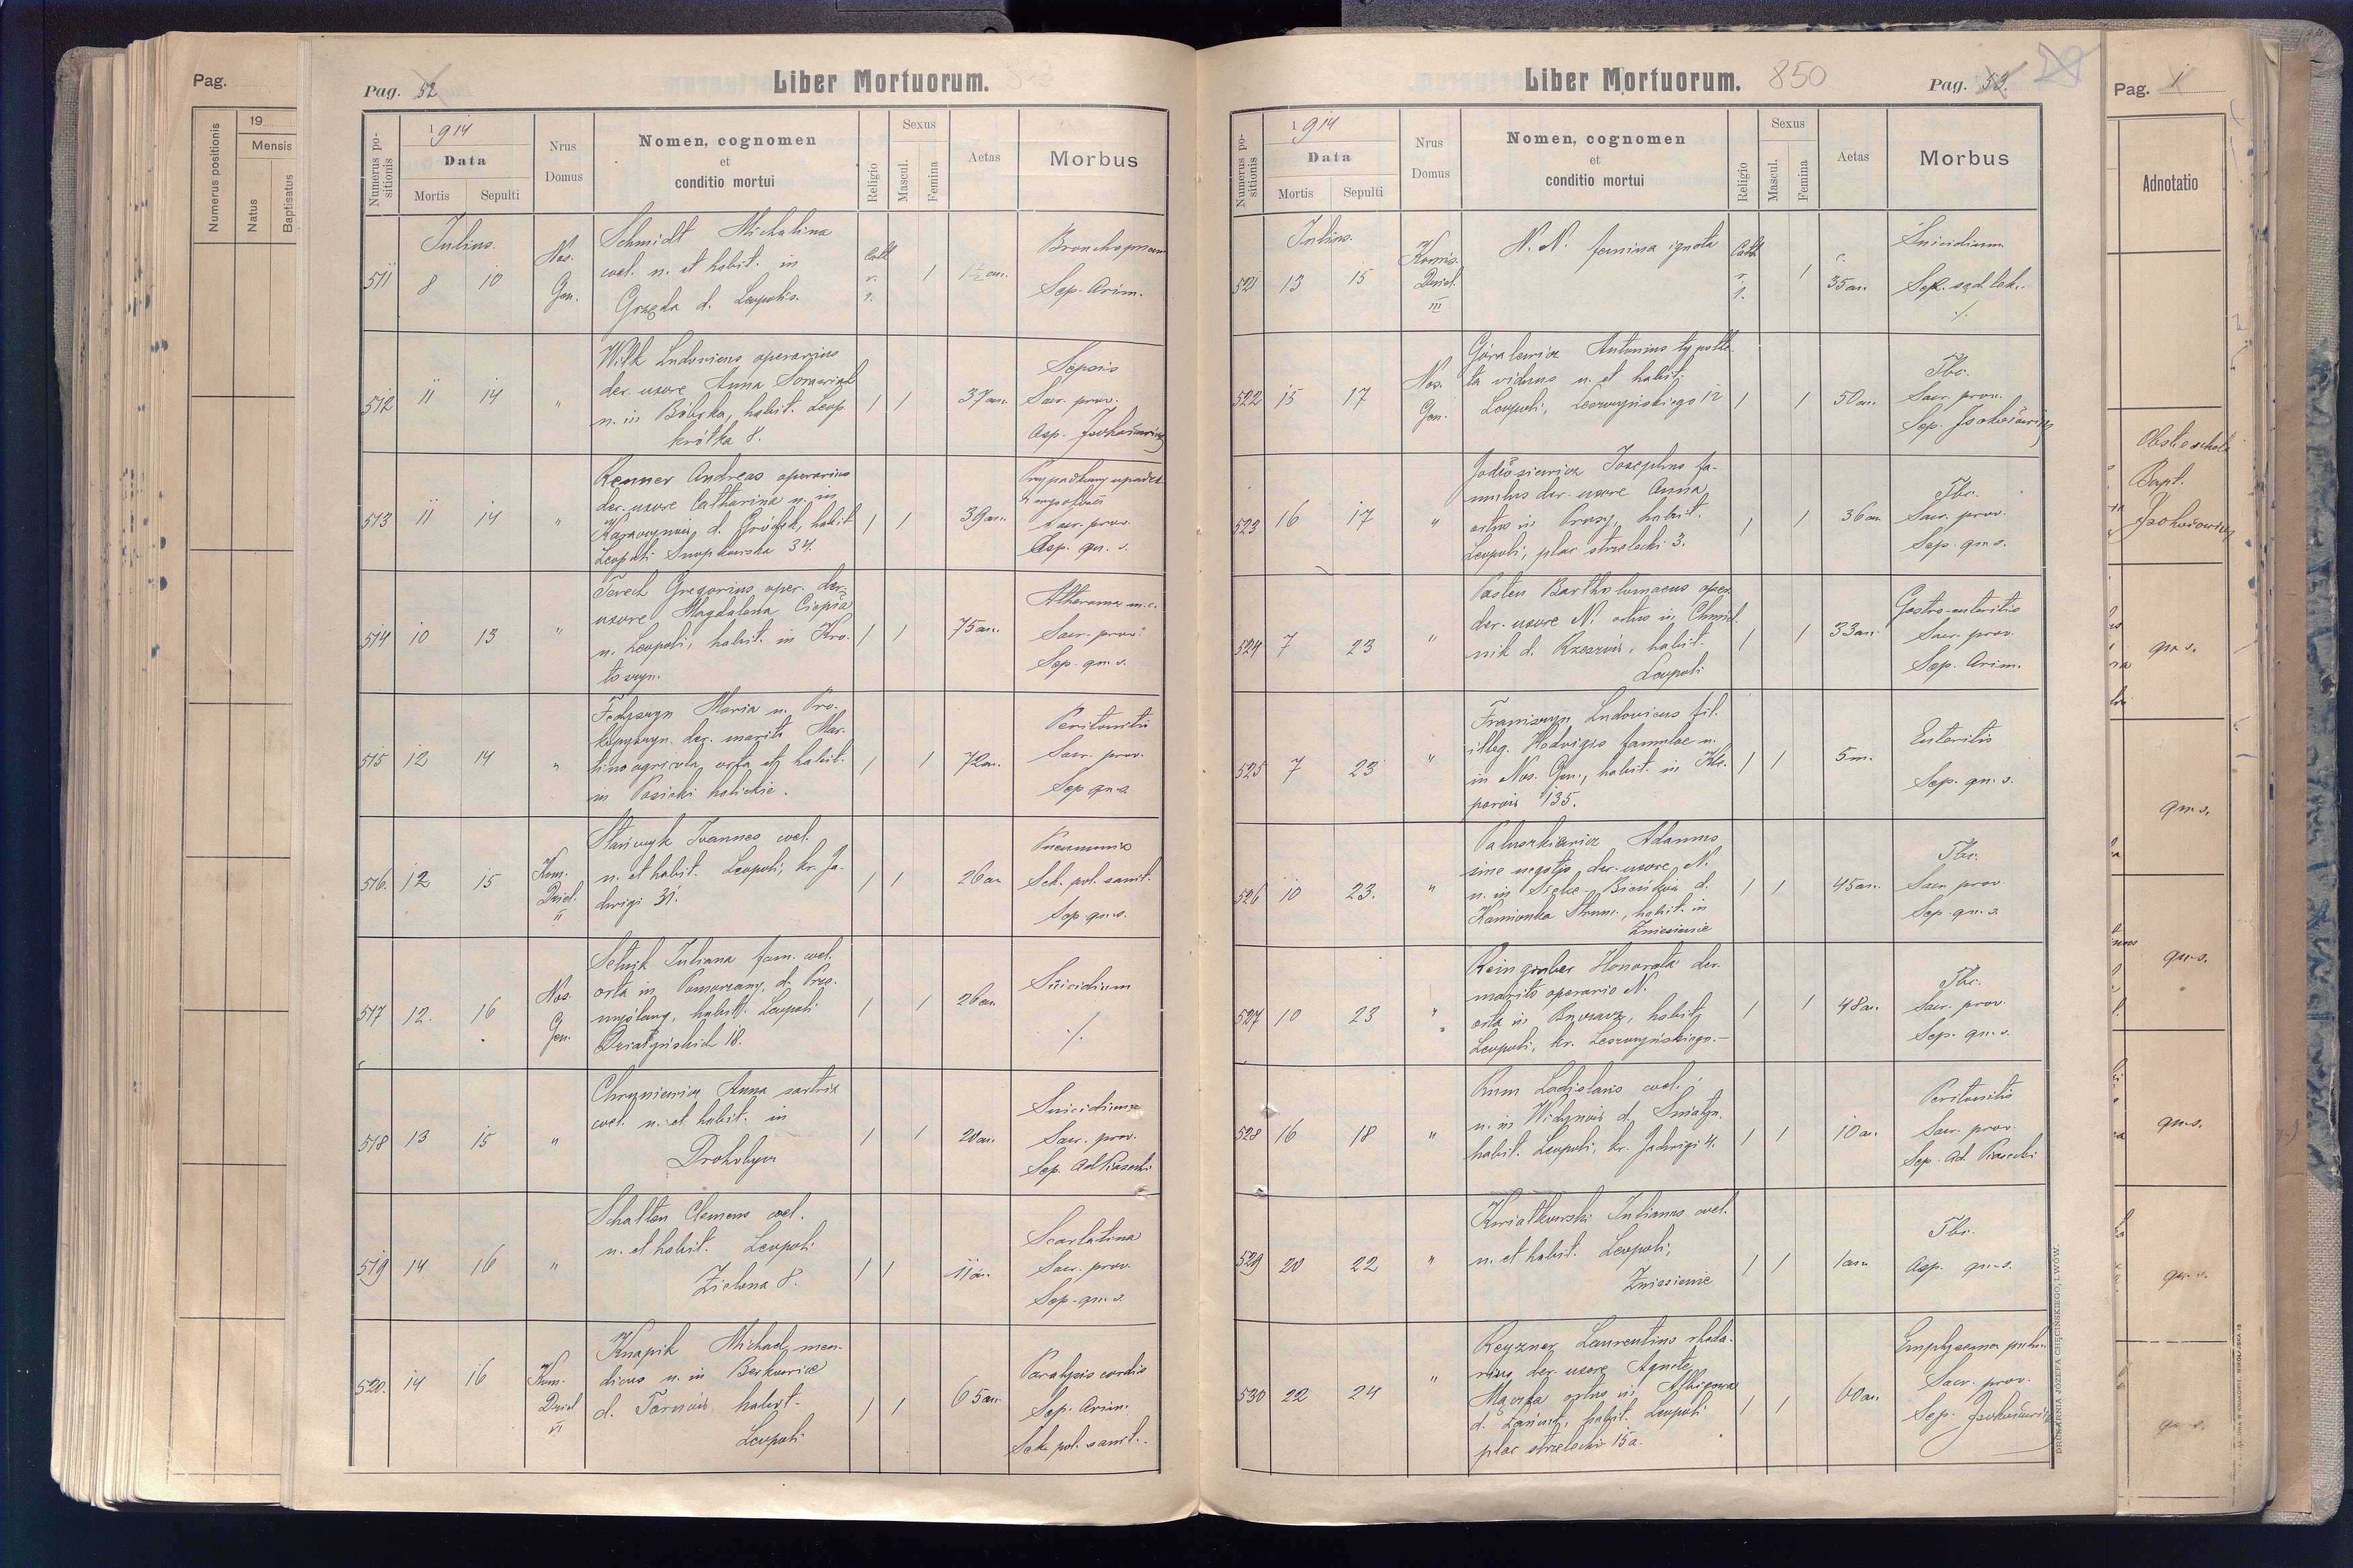 Pag.
Numerus positionis
19
Mensis
Natus
Baptisatus
Pag. 52
Liber Mortuorum.
Numerus positionis
1914
Data
Mortis
Sepulti
Nrus
Domus
Nomen, cognomen
et
conditio mortui
Religio
Sexus
Mascul.
Femina
Aetas
Morbus
Julius.
511 8 10
Nos.
Gen.
Schmidt Michalina
coel. n. et habit. in
Grzęda d. Leopolis.
Cath
r.
l.
1
1 1/2 an.
Sep. Arim.
512 11 14 "
Wilk Ludovicus operarius
der. uxore Anna
n. in Bóbrka, habit. Leop.
krótka 8.
1 1
37an.
Sepsis
Sacr. prov.
Asp.
513 11 14 "
Renner Andreas operarius
der. uxore Catharina n. in
d. Gródek, habit
Leopoli 34.
1 1
39an.
Sacr. prov.
Asp. qu. s.
514 10 13 "
Terech Gregorius oper. der.
uxore Magdalena
n. Leopoli, habit. in Kro-
toszyn.
1 1
75an.
Atheroma m. c.
Sacr. prov.
Sep. qu. s.
515 12 14 "
Fedyszyn Maria n. Pro-
der. marito Mar-
tino agricola, orta et habit.
in Pasieki halickie.
1 1
72an.
Peritonitis
Sacr. prov.
Sep qu. s.
516. 12 15
Kom.
Dziel.
II
Stańczyk Joannes coel.
n. et habit. Leopoli, kr. Ja-
dwigi 31.
1 1
26an
Pneumonia
Sek. pol. sanit.
Sep. qu. s.
517 12. 16
Nos.
Gen.
Selnik Juliana fam. coel.
orta in Pomorzany, d. Prze-
myślany, habit. Leopoli
Działyńskich 18.
1 1
26an.
Suicidium
./.
518 13 15 "
Chrzniewicz Anna sartrix
coel. n. et habit. in
Drohobycz
1 1
20an.
Suicidium
Sacr. prov.
Sep. Ad Piasecki
519 14 16 "
Schalten Clemens coel.
n. et habit. Leopoli
Zielona 8.
1 1
11an.
Scarlatina
Sacr. prov.
Sep. qu. s.
520. 14 16
Kom.
Dziel
VI
Knapik Michael, men-
dicus n. in
d. Tarnów habit.
Leopoli
1 1
65an.
Paralysis cordis
Sep. Arim.
Sek. pol. sanit.
Liber Mortuorum. 850
Pag. 53.
Numerus positionis
1914
Data
Mortis
Sepulti
Nrus
Domus
Nomen, cognomen
et
conditio mortui
Religio
Sexus
Mascul.
Femina
Aetas
Morbus
Julius.
521 13 15
Komis.
Dziel.
III
N. N. femina ignota
Cath
r.
l.
1
c.
35an.
Suicidium.
Sek. sąd. lek.
./.
522 15 17
Nos.
Gen.
Góralewicz Antonius typothe-
ta viduus n. et habit.
Leopoli, Leszczyńskiego 12
1 1
50an.
Tbc.
Sacr. prov.
Sep.
523 16 17 "
Josephus fa-
mulus der. uxore Anna
ortus in Prusy, habit.
Leopoli, plac strzelecki 3.
1 1
36an
Tbc.
Sacr. prov.
Sep. qu. s.
524 7 23 "
Pasten Bartholomaeus oper.
der. uxore N. ortus in Chmiel-
nik d. Rzeszów, habit.
Leopoli
1 1
33an.
Gastro-enteritis
Sacr. prov.
Sep. Arim.
525 7 23 "
Franiszyn Ludovicus fil.
illeg. Hedvigis famulae n.
in Nos. Gen., habit. in Kle-
parów 135.
1 1
5m.
Enteritis
Sep. qu. s.
526 10 23. "
Paluszkiewicz Adamus
sine negotio, der. uxore N.
n. in Sielec Bieńków d.
Kamionka Strum., habit. in
Zniesienie
1 1
45an.
Tbc.
Sacr. prov.
Sep. qu. s.
527 10 23 "
Reingruber Honorata der.
marito operario N.
orta in habit.
Leopoli, kr. Leszczyńskiego.
1 1
48an.
Tbc.
Sacr. prov.
Sep. qu. s.
528 16 18 "
Ladislaus coel.
n. in Widynów d. Śniatyn.
habit. Leopoli, kr. Jadwigi 4.
1 1
10an.
Peritonitis
Sacr. prov.
Sep. Ad. Piasecki
529 20 22 "
Kwiatkowski Julianus coel.
n. et habit. Leopoli,
Zniesienie
1 1
1an
Tbc.
Asp. qu. s.
530 22 24 "
Reyzner Laurentius rheda-
rius der. uxore Agnete
ortus in Albigowa
d. Łańcut, habit. Leopoli
plac strzelecki 15a.
1 1
60an.
Emphysema pulm.
Sacr. prov.
Sep.
DRUKARNIA JÓZEFA CHĘCIŃSKIEGO, LWÓW.
Pag. 1
Adnotatio
Bapt.
qu. s.
qu. s.
qu. s.
qu. s.
qu. s.
qu. s.